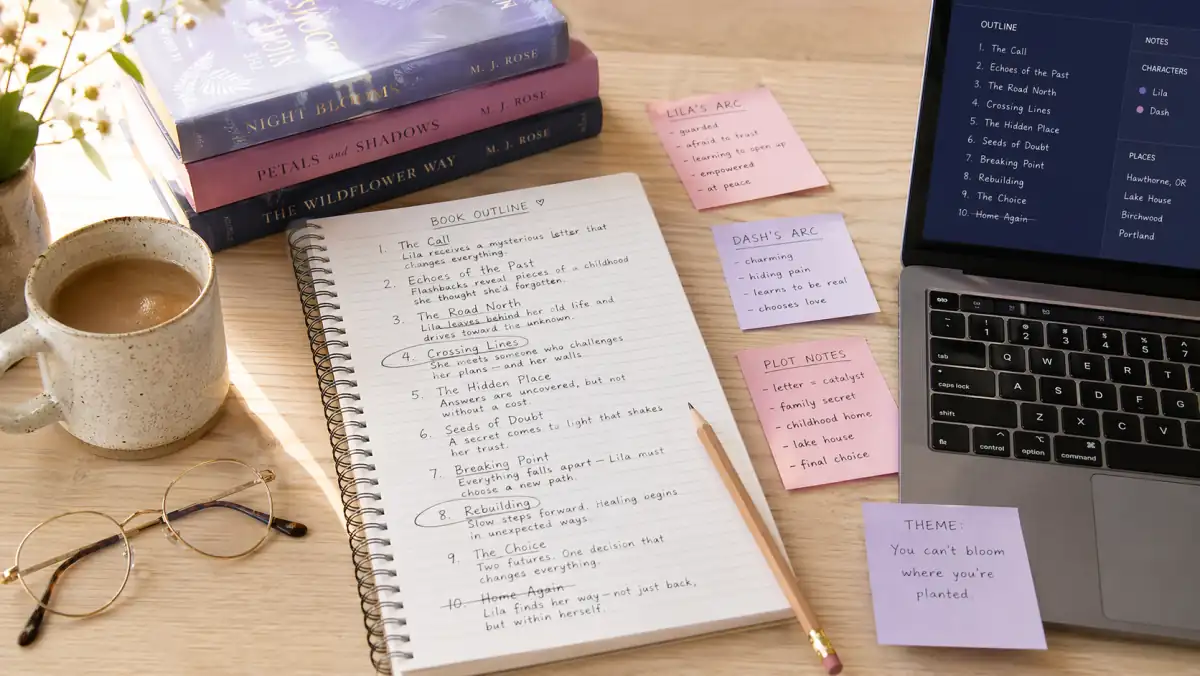 NIGHT BLOOMS
M. J. ROSE
PETALS and SHADOWS
M. J. ROSE
THE WILDFLOWER WAY
M. J. ROSE
BOOK OUTLINE ♡
1. The Call
Lila receives a mysterious letter that
changes everything.
2. Echoes of the Past
Flashbacks reveal pieces of a childhood
she thought she'd forgotten.
3. The Road North
Lila leaves behind her old life and
drives toward the unknown.
4. Crossing Lines
She meets someone who challenges
her plans — and her walls.
5. The Hidden Place
Answers are uncovered, but not
without a cost.
6. Seeds of Doubt
A secret comes to light that shakes
her trust.
7. Breaking Point
Everything falls apart — Lila must
choose a new path.
8. Rebuilding
Slow steps forward. Healing begins
in unexpected ways.
9. The Choice
Two futures. One decision that
changes everything.
10. Home Again
Lila finds her way — not just back,
but within herself.
LILA'S ARC
- guarded
- afraid to trust
- learning to open up
- empowered
- at peace
DASH'S ARC
- charming
- hiding pain
- learns to be real
- chooses love
PLOT NOTES
- letter = catalyst
- family secret
- childhood home
- lake house
- final choice
THEME:
You can't bloom
where you're
planted.
OUTLINE
1. The Call
2. Echoes of the Past
3. The Road North
4. Crossing Lines
5. The Hidden Place
6. Seeds of Doubt
7. Breaking Point
8. Rebuilding
9. The Choice
10. Home Again
NOTES
CHARACTERS
Lila
Dash
PLACES
Hawthorne, OR
Lake House
Birchwood
Portland
! 1 @ 2 # 3 $ 4 % 5 7
tab Q W E R T
caps lock A S D F G
shift Z X C V
control option command